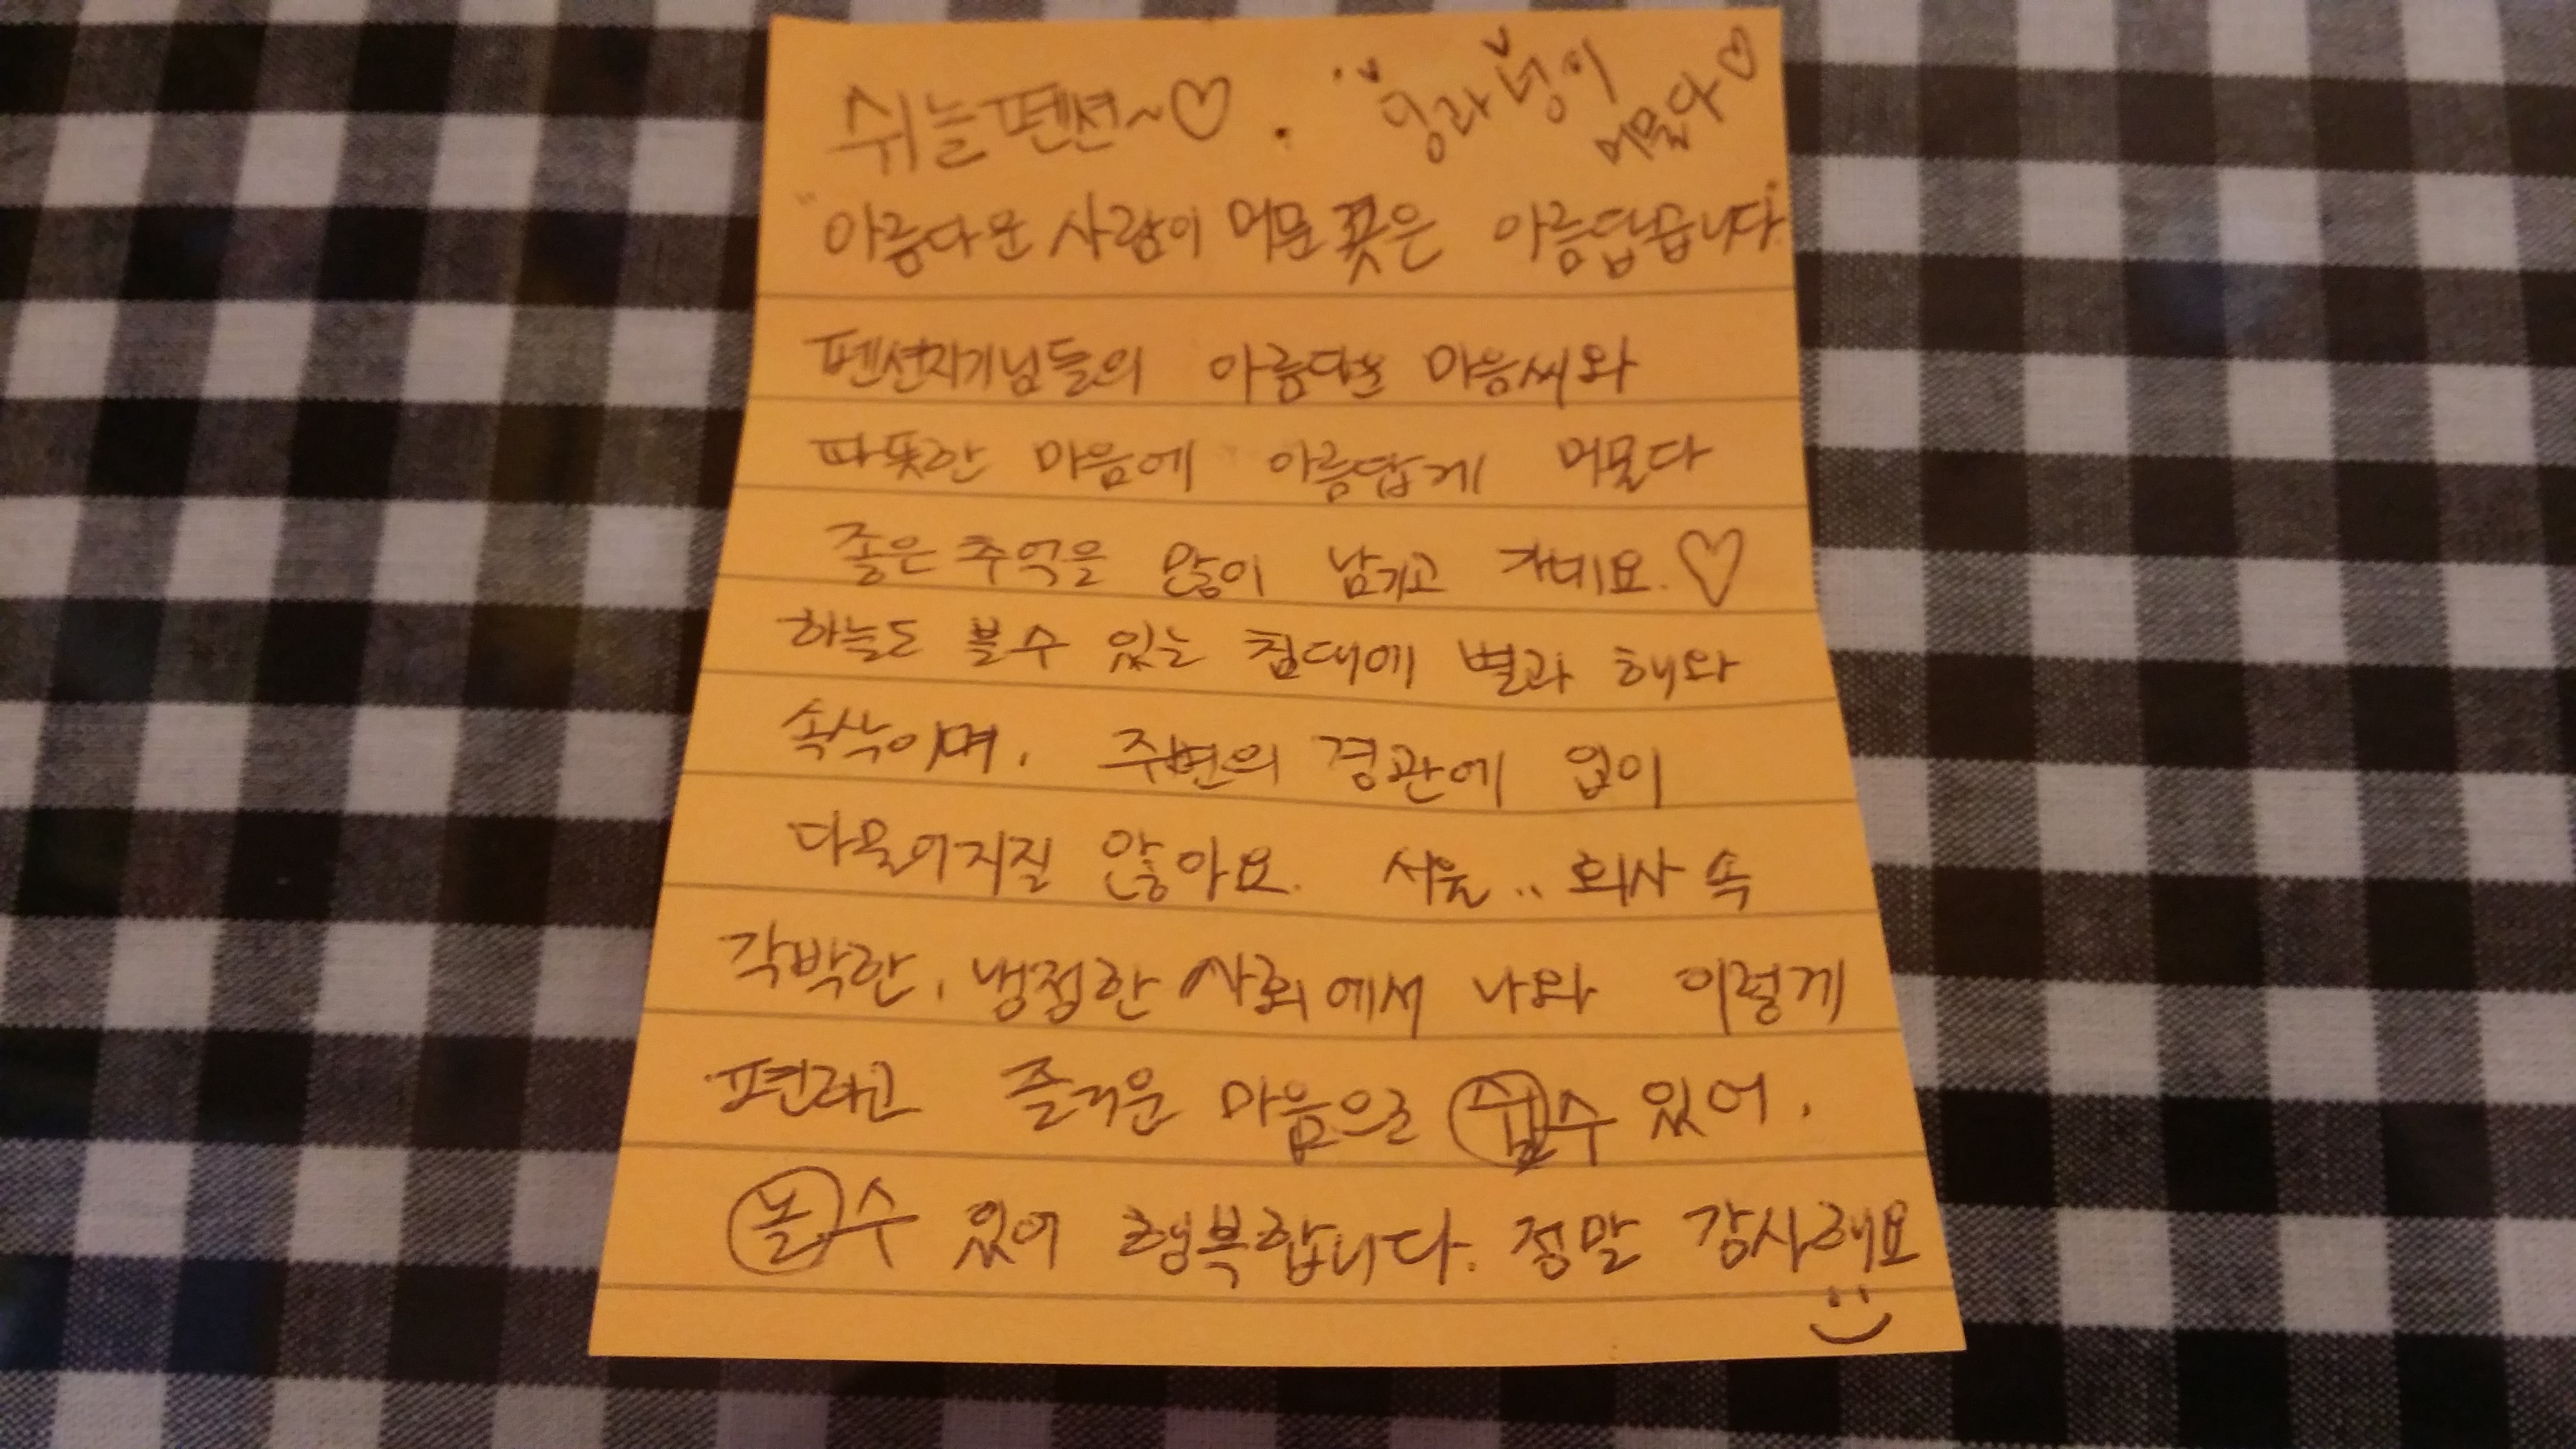 쉬늘펜션~♡. 잉라녕이
머물다♡
"아름다운 사람이 머문 꽃은 아름답습니다."
펜션지기님들의 아름다운 마음씨와
따뜻한 마음에 아름답게 머물다
좋은 추억을 많이 남기고 가네요.♡
하늘도 볼수 있는 침대에 별과 해와
속삭이며, 주변의 경관에 입이
다물어지질 않아요. 서울.. 회사 속
각박한, 냉정한 사회에서 나와 이렇게
편하고 즐거운 마음으로 쉴수 있어,
놀수 있어 행복합니다. 정말 감사해요